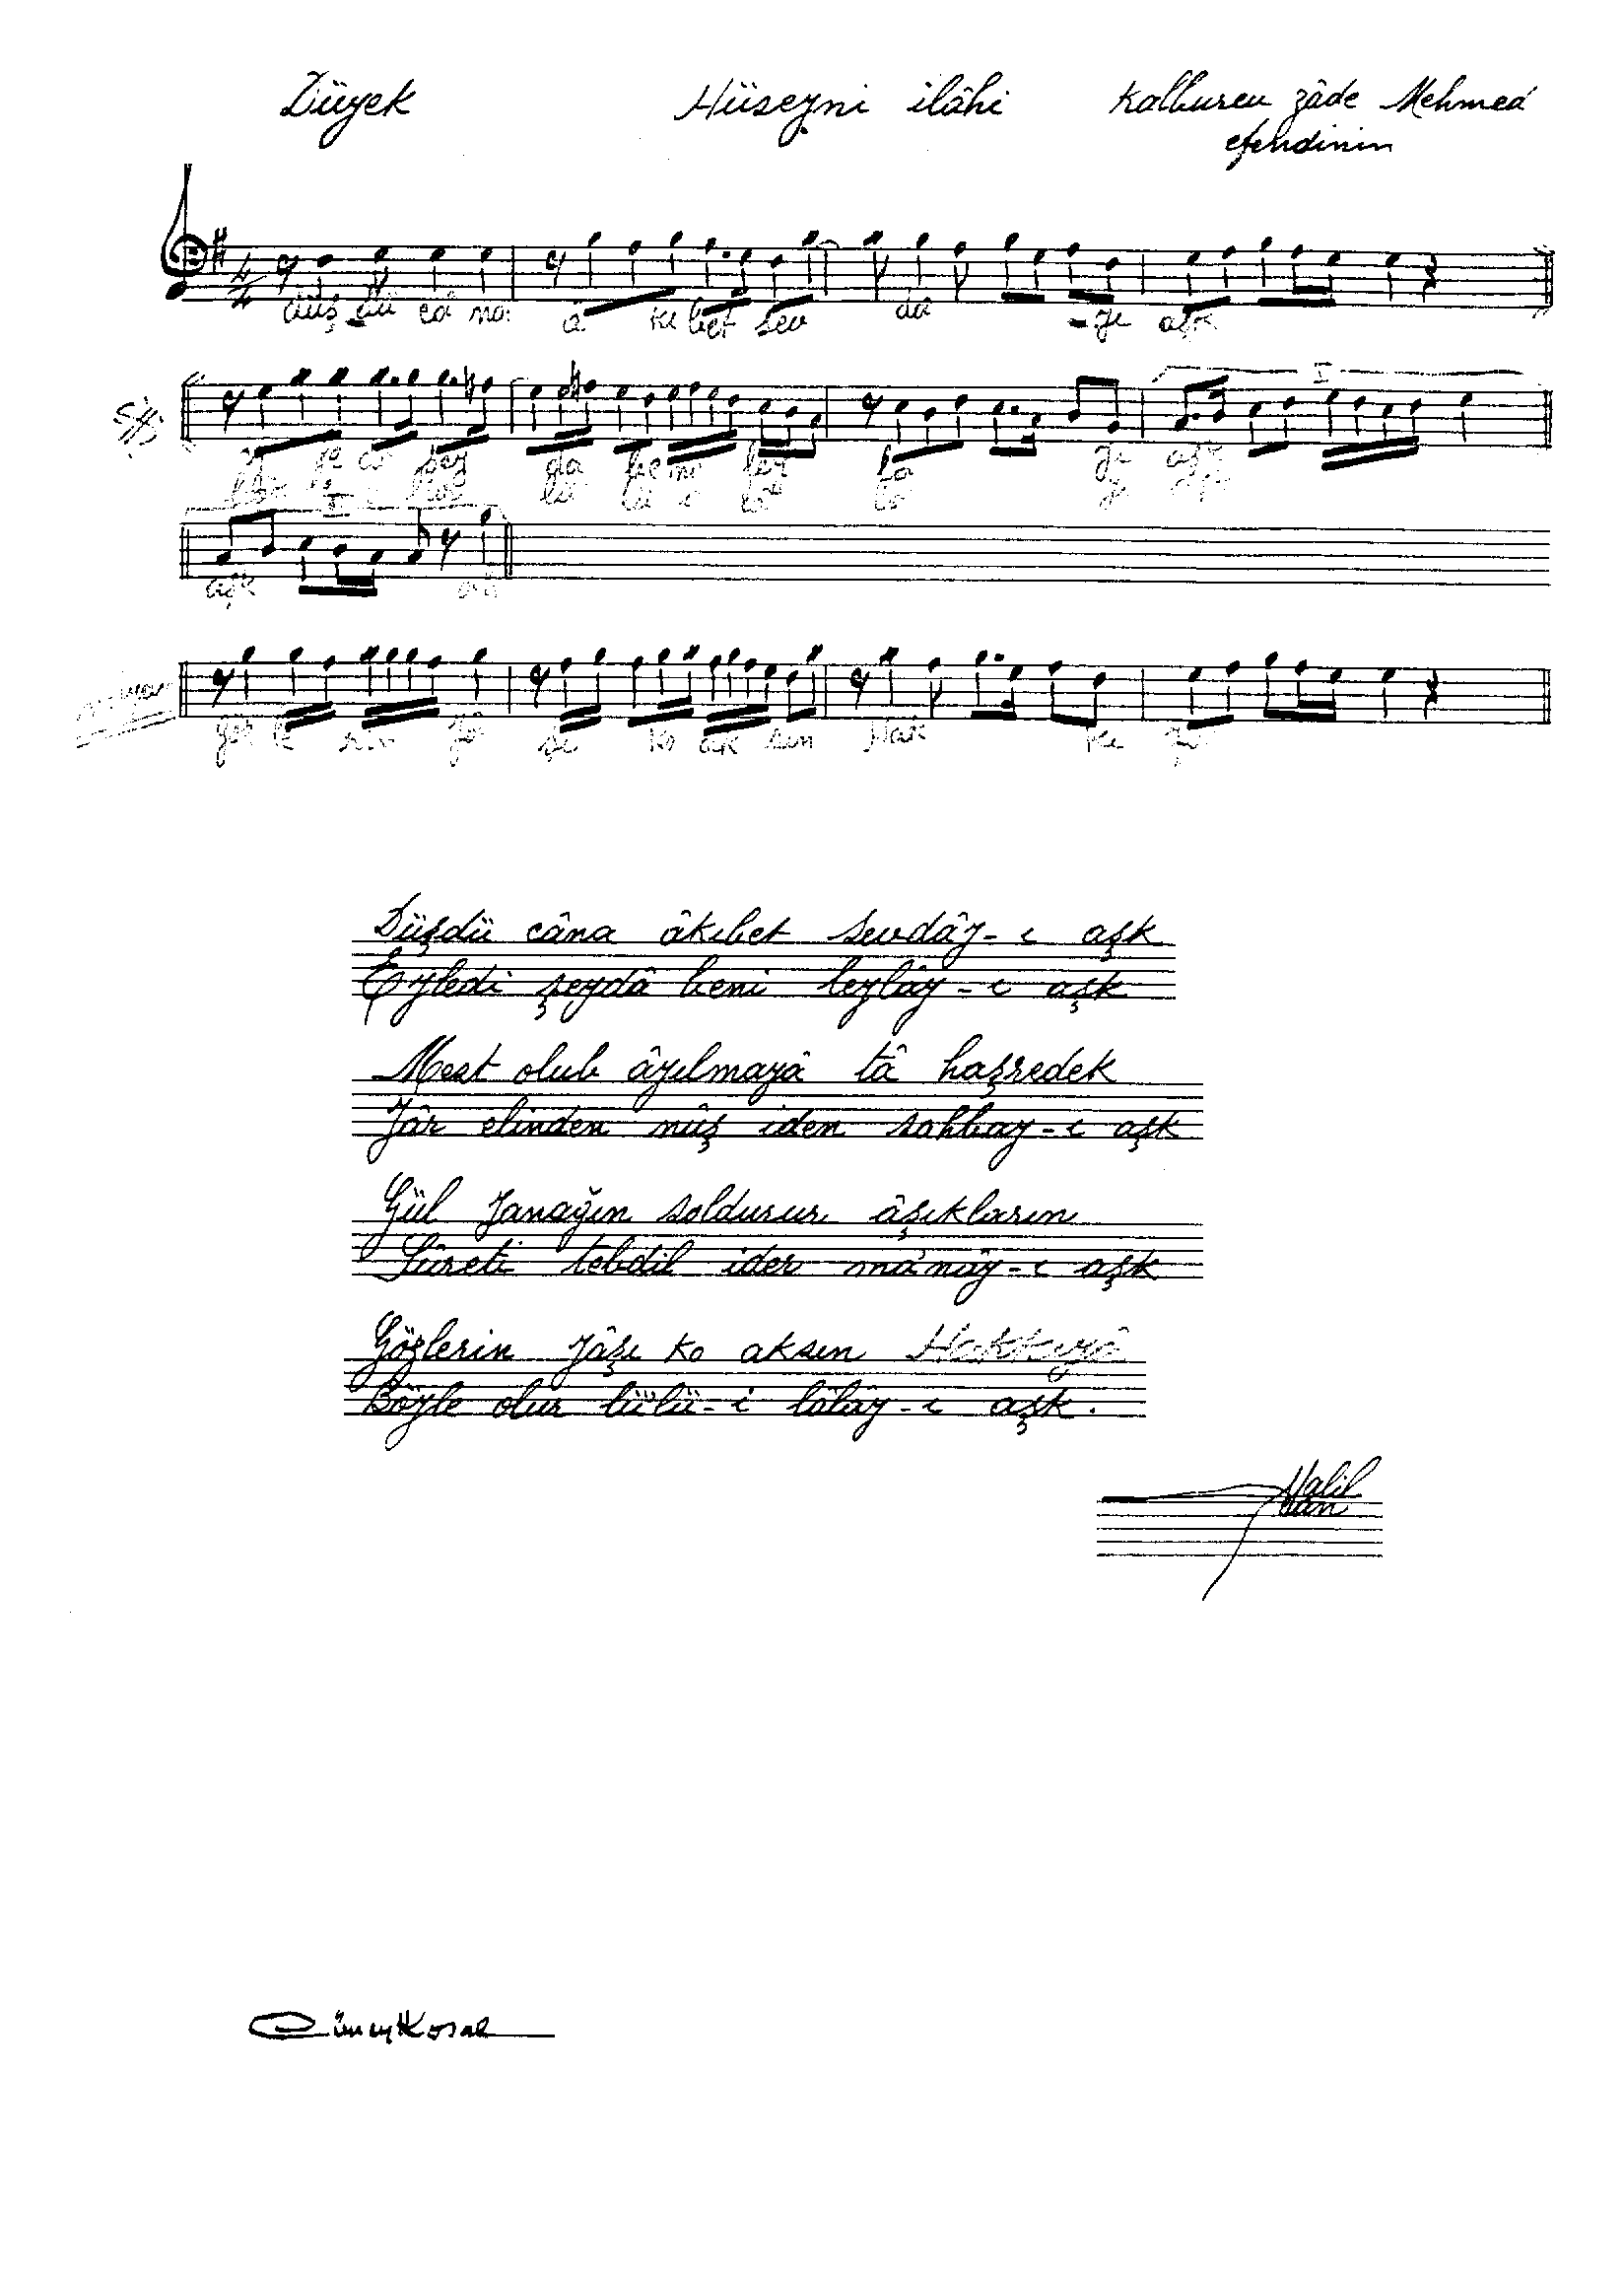 Düyek Hüseyni ilâhi Kalburcu zâde Mehmed
efendinin
düş dü câ na â kı bet sev dâ yı aşk
şey dâ be ni ley lâ yı aşk
aşk
göz le rin yâ şı ko ak sın Hak kı yâ
Düşdü câna âkıbet sevdây-ı aşk
Eyledi şeydâ beni leylây-ı aşk
Mest olub âyılmayâ tâ haşredek
Yâr elinden nûş iden sahbay-ı aşk
Gül yanağın soldurur âşıkların
Sûreti tebdil ider mânây-ı aşk
Gözlerin yâşı ko aksın Hakkıyâ
Böyle olur lü'lü-i lâlây-ı aşk.
Halil
Can
Cüneyt Kosal